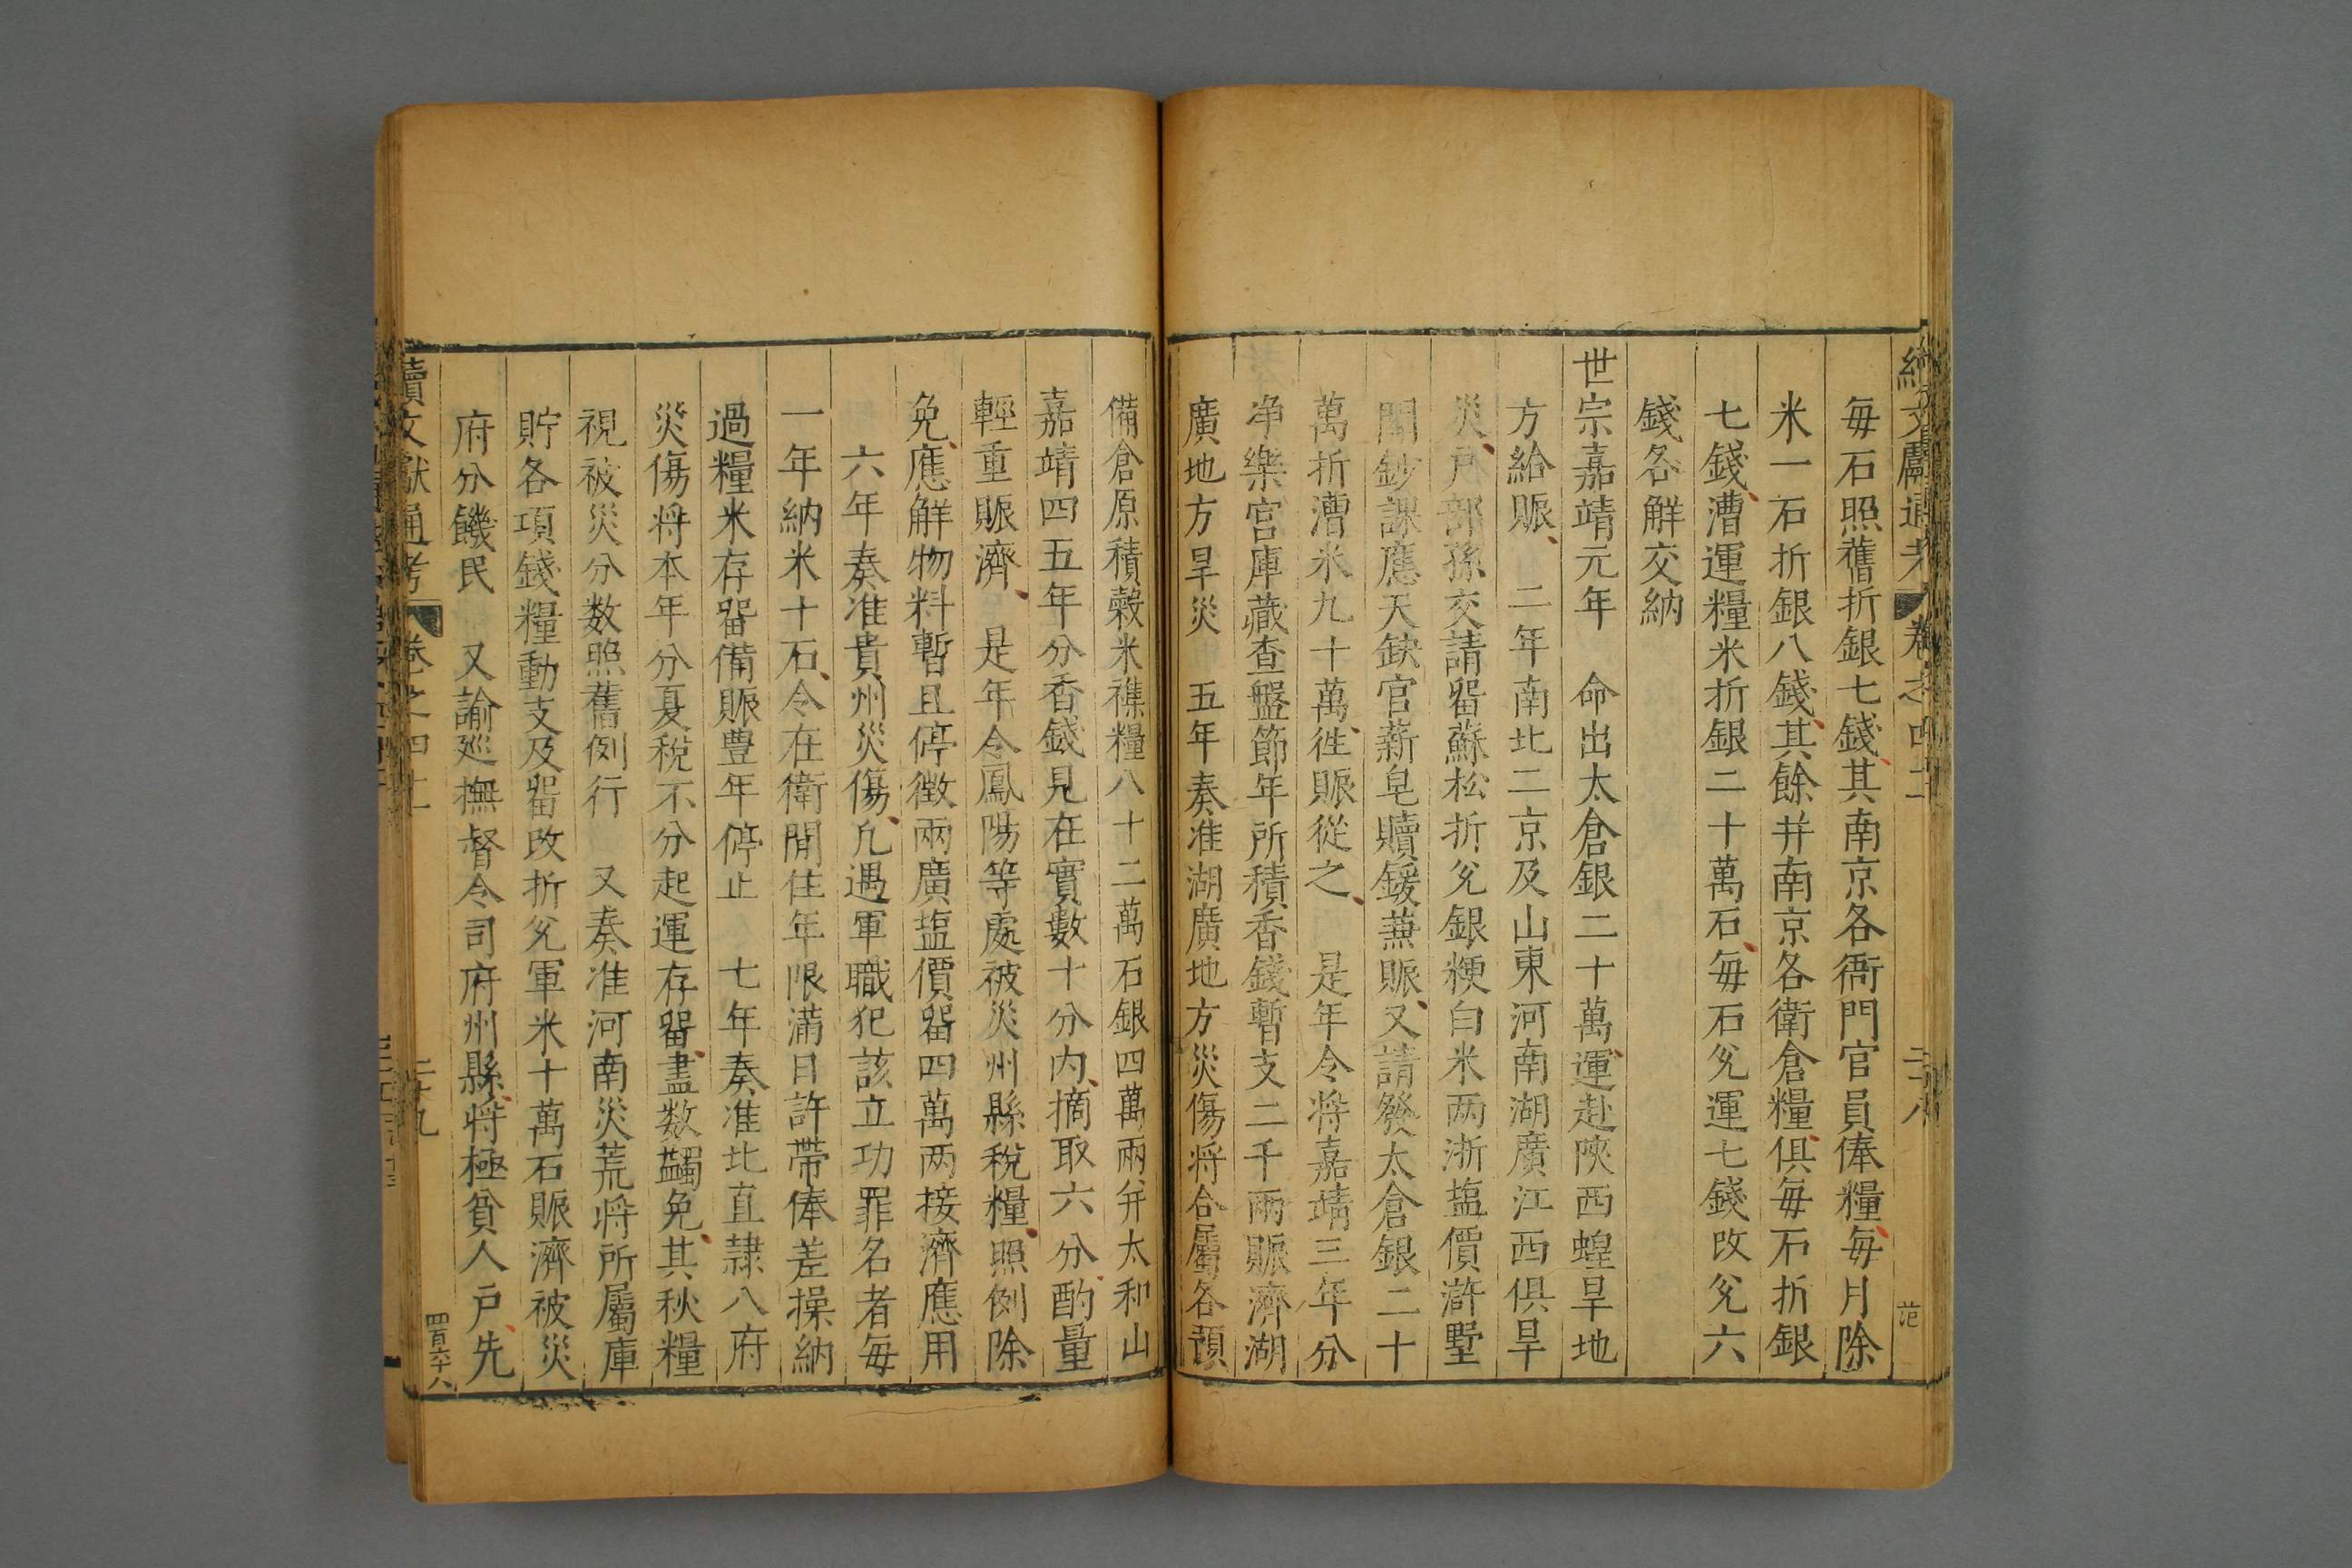 續文獻通考 卷之四十二 二十八 范
每石照舊折銀七錢其南京各衙門官員俸糧每月除
米一石折銀八錢其餘并南京各衛倉糧俱每石折銀
七錢漕運糧米折銀二十萬石每石兌運七錢改兌六
錢各觧交納
世宗嘉靖元年 命出太倉銀二十萬運赴陜西蝗旱地
方給賑 二年南北二京及山東河南湖廣江西俱旱
災户部孫交請畱蘇松折兌銀粳白米两浙塩價滸墅
關鈔課應天缺官薪皂贖鍰蕪賑又請發太倉銀二十
萬折漕米九十萬徃賑從之 是年令将嘉靖三年分
净樂宫庫藏查盤節年所積香錢暫支二千兩賑濟湖
廣地方旱災 五年奏准湖廣地方災傷将合屬各預
備倉原積榖米襍糧八十二萬石銀四萬兩并太和山
嘉靖四五年分香錢見在實數十分内摘取六分酌量
輕重賑濟 是年令鳳陽等處被災州縣稅糧照例除
免應觧物料暫且停徵兩廣塩價畱四萬两接濟應用
六年奏准貴州災傷凢遇軍職犯該立功罪名者每
一年納米十石令在衛閒住年限滿日許帶俸差操納
過糧米存畱備賑豊年停止 七年奏准北直隷八府
災傷将本年分夏稅不分起運存畱盡数蠲免其秋糧
視被災分数照舊例行 又奏准河南災荒将所屬庫
貯各項錢糧動支及畱改折兌軍米十萬石賑濟被災
府分饑民 又諭廵撫督令司府州縣将極貧人戸先
續文獻通考 卷之四十二 二十九 四百六十八